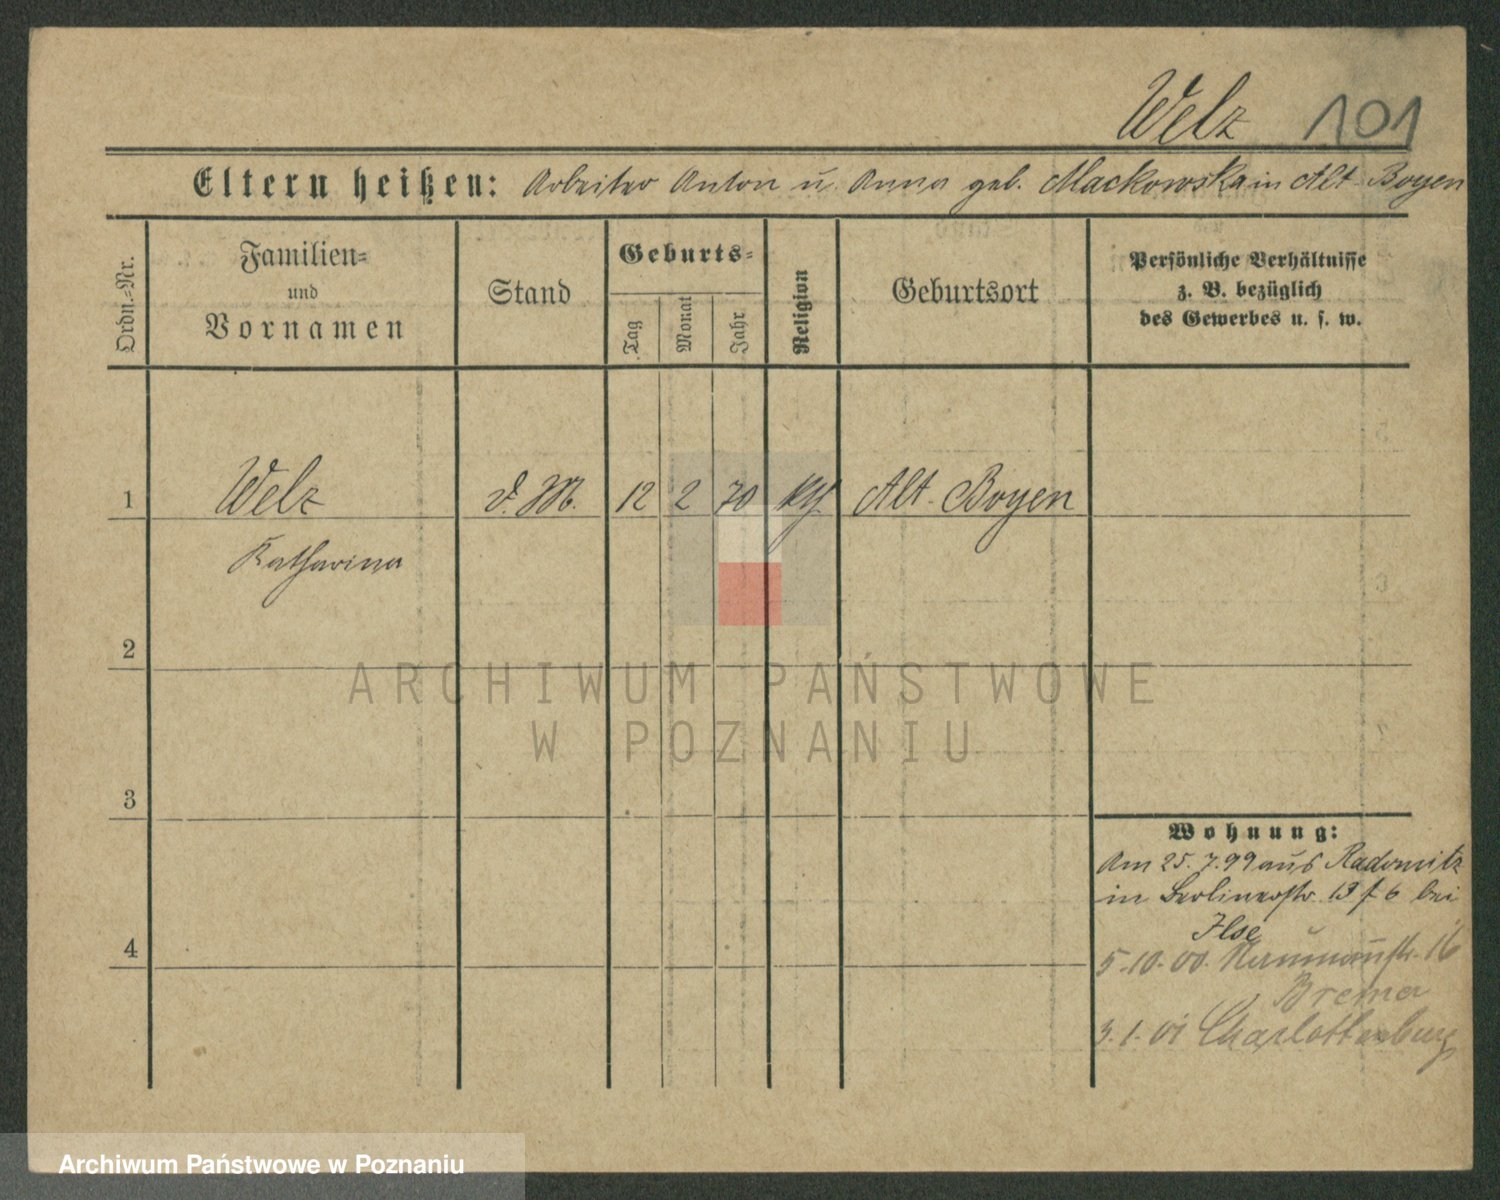 Welz 101
Eltern heißen: Arbeiter Anton u. Anna geb. Mackowska in Alt-Boyen
Ordn.=Nr.
Familien=
und
Vornamen
Stand
Geburts=
Tag
Monat
Jahr
Religion
Geburtsort
Persönliche Verhältnisse
z. B. bezüglich
des Gewerbes u. s. w.
1 Welz d. M. 12 2 70 kth. Alt-Boyen
Katharina
2
3
4
Wohnung:
Am 25.7.99 aus Radomitz
in Berlinerstr. 13 f 6 bei
Ilse
5.10.00. Naumannstr. 16
Brema
3.1.01 Charlottenburg
ARCHIWUM PAŃSTWOWE
W POZNANIU
Archiwum Państwowe w Poznaniu